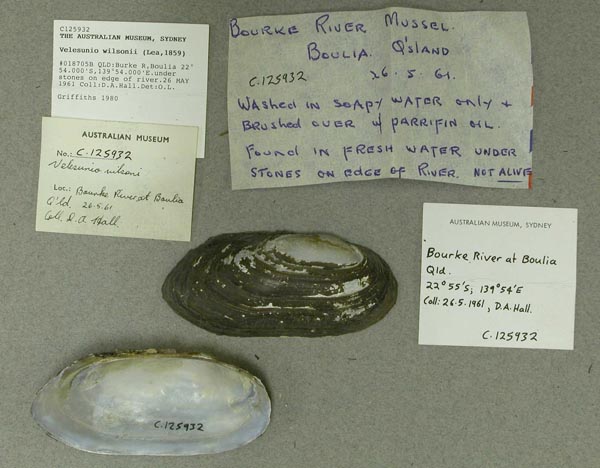 C125932
THE AUSTRALIAN MUSEUM, SYDNEY
Velesunio wilsonii (Lea,1859)
#018705B QLD:Burke R.Boulia 22°
54.000'S,139°54.000'E.under
stones on edge of river.26 MAY
1961 Coll:D.A.Hall.Det:O.L.
Griffiths 1980
AUSTRALIAN MUSEUM
No.: C.125932
Velesunio wilsoni
Loc.: Bourke River at Boulia
Q'ld. 26.5.61
Coll. D.A. Hall.
BOURKE RIVER MUSSEL.
BOULIA. Q'SLAND
C.125932
26.5.61.
WASHED IN SOAPY WATER ONLY +
BRUSHED OVER W PARRIFIN OIL.
FOUND IN FRESH WATER UNDER
STONES ON EDGE OF RIVER. NOT ALIVE
AUSTRALIAN MUSEUM, SYDNEY
Bourke River at Boulia
Qld.
22°55'S; 139°54'E
Coll: 26.5.1961, D.A. Hall.
C.125932
C.125932